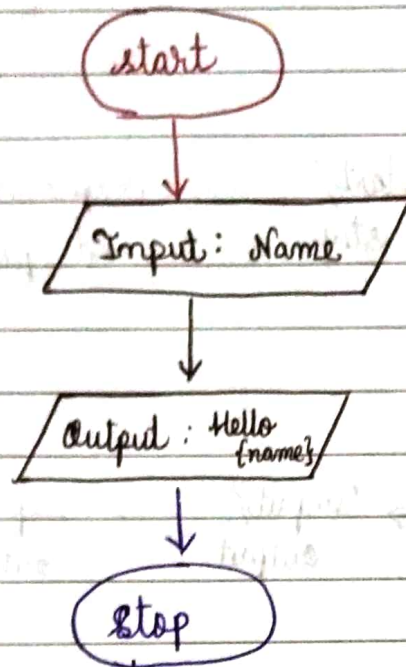 start
Input: Name
Output : Hello
{name}
Stop